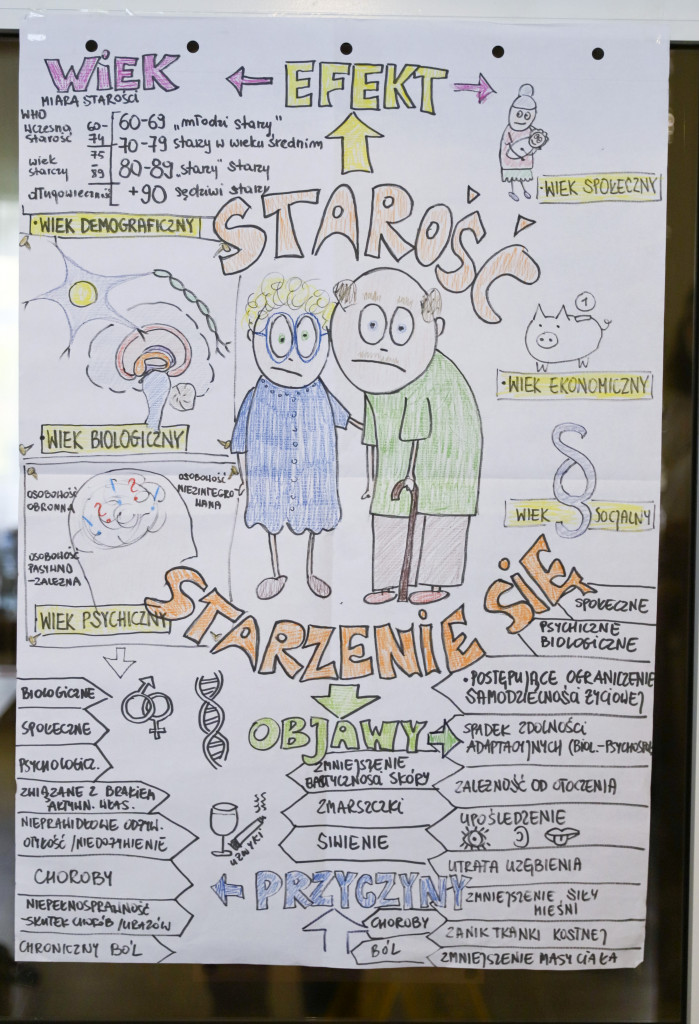 WiEK
EFEKT
MIARA STAROŚCI
WHO
WCZESNA STAROŚĆ 60-74
wiek starczy 75-89
długowieczność
60-69 „młodzi starzy”
70-79 starzy w wieku średnim
80-89 „starzy” starzy
+90 sędziwi starzy
1
• WIEK SPOŁECZNY
• WIEK DEMOGRAFICZNY
STAROŚĆ
• WIEK EKONOMICZNY
• WIEK BIOLOGICZNY
WIEK SOCJALNY
OSOBOWOŚĆ OBRONNA
OSOBOWOŚĆ NIEZINTEGROWANA
OSOBOWOŚĆ
PASYWNO
-ZALEŻNA
WIEK PSYCHICZNY
STARZENIE SIĘ
SPOŁECZNE
PSYCHICZNE
BIOLOGICZNE
BIOLOGICZNE
SPOŁECZNE
PSYCHOLOGICZ.
ZWIĄZANE Z BRAKIEM
AKTYWN. WŁAS.
NIEPRAWIDŁOWE ODŻYW.
OTYŁOŚĆ / NIEDOŻYWIENIE
CHOROBY
NIEPEŁNOSPRAWNOŚĆ
-SKUTEK CHORÓB / URAZÓW
CHRONICZNY BÓL
UŻYWKI
OBJAWY
ZMNIEJSZENIE
ELASTYCZNOŚCI SKÓRY
ZMARSZCZKI
SIWIENIE
• POSTĘPUJĄCE OGRANICZENIE
SAMODZIELNOŚCI ŻYCIOWEJ
SPADEK ZDOLNOŚCI
ADAPTACYJNYCH (BIOL.-PSYCHOSPOŁ
ZALEŻNOŚĆ OD OTOCZENIA
UPOŚLEDZENIE
UTRATA UZĘBIENIA
ZMNIEJSZENIE SIŁY
MIĘŚNI
ZANIK TKANKI KOSTNEJ
ZMNIEJSZENIE MASY CIAŁA
PRZYCZYNY
CHOROBY
BÓL